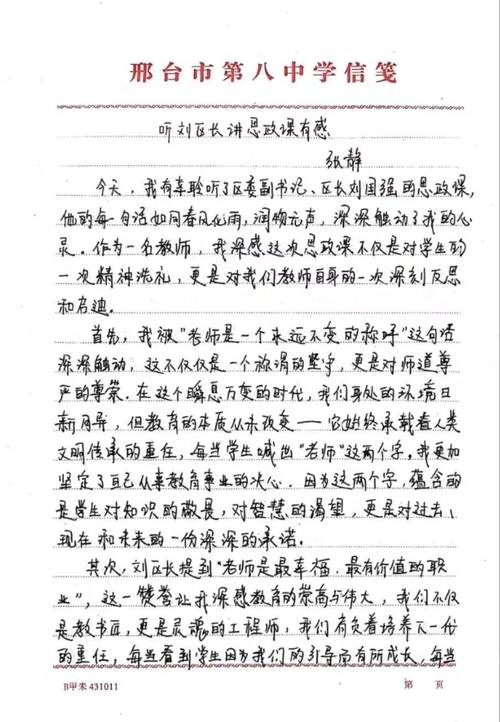 邢台市第八中学信笺
听刘区长讲思政课有感
张静
今天，我有幸聆听了区委副书记、区长刘国强的思政课，
他的每一句话如同春风化雨，润物无声，深深触动了我的心
灵。作为一名教师，我深感这次思政课不仅是对学生的
一次精神洗礼，更是对我们教师自身的一次深刻反思
和启迪。
首先，我被“老师是一个永远不变的称呼”这句话
深深触动，这不仅仅是一个称谓的坚守，更是对师道尊
严的尊崇。在这个瞬息万变的时代，我们身处的环境日
新月异，但教育的本质从未改变——它始终承载着人类
文明传承的重任，每当学生喊出“老师”这两个字，我更加
坚定了自己从事教育事业的决心。因为这两个字，蕴含的
是学生对知识的敬畏，对智慧的渴望，更是对过去、
现在和未来的一份深深的承诺。
其次，刘区长提到“老师是最幸福，最有价值的职
业”，这一赞誉让我深感教育的崇高与伟大，我们不仅
是教书匠，更是灵魂的工程师，我们肩负着培养下一代
的重任，每当看到学生因为我们的引导而有所成长，每当
B甲末431011
第 页